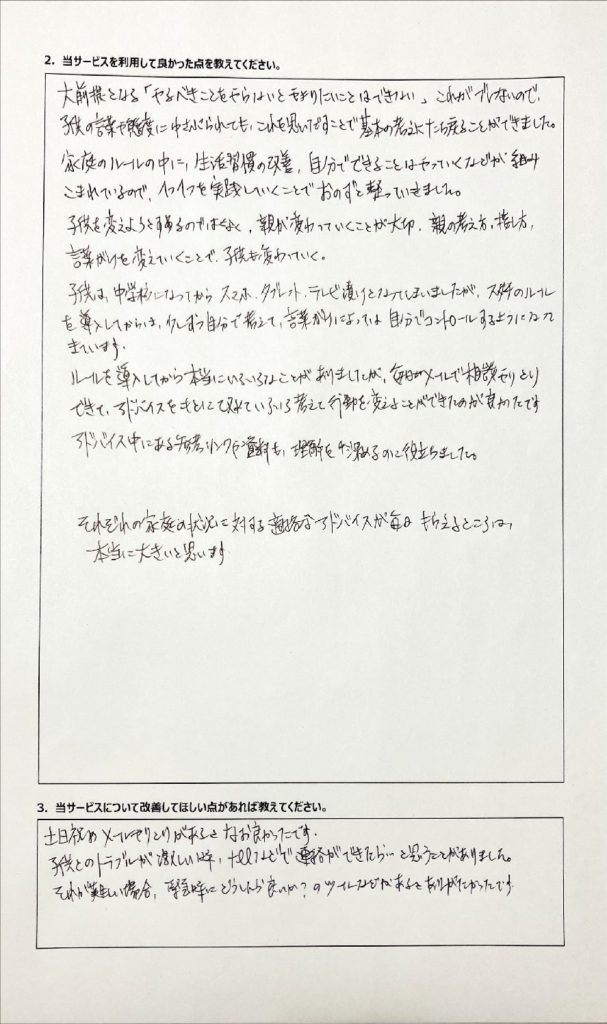 2. 当サービスを利用して良かった点を教えてください。
大前提となる「やるべきことをやらないとやりたいことはできない」これがブレないので、
子供の言葉や態度にゆさぶられても、これを思いだすことで基本の考えに立ち戻ることができました。
家庭のルールの中に、生活習慣の改善、自分でできることはやっていくなどが組み
こまれているので、1つ1つを実践していくことでおのずと整っていきました。
子供を変えようとするのではなく、親が変わっていくことが大切、親の考え方、接し方、
言葉がけを変えていくことで、子供も変わっていく。
子供は、中学校になってからスマホ、タブレット、テレビ漬けとなってしまいましたが、スダチのルール
を導入してからは、少しずつ自分で考えて、言葉がけによっては自分でコントロールするようになって
きています。
ルールを導入してから本当にいろいろなことがありましたが、毎日のメールで相談やりとり
できて、アドバイスをもとにていろいろ考えて行動を変えることができたのが良かったです
アドバイス中にある参考リンクや資料も、理解を深めるのに役立ちました。
それぞれの家庭の状況に対する適格なアドバイスが毎日もらえるところは、
本当に大きいと思います
3. 当サービスについて改善してほしい点があれば教えてください。
土日祝もメールやりとりがあるとなお良かったです。
子供とのトラブルが激しい時、telなどで連絡ができたら…と思うことがありました。
それが難しい場合、緊急時にどうしたら良いか?のツールなどがあるとありがたかったです